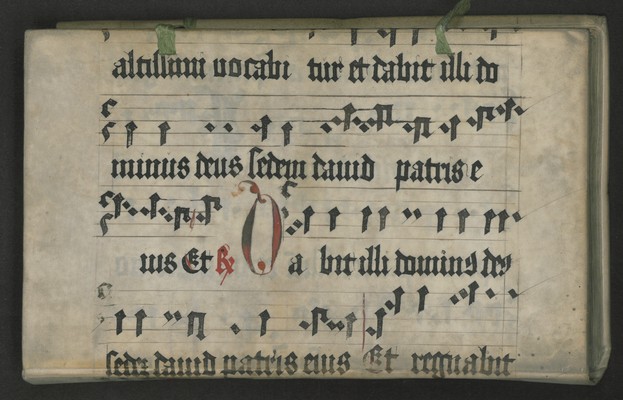 altissimi vocabi tur et dabit illi do
minus deus sedem dauid patris e
ius Et ℟ D a bit illi dominꝰ deꝰ
sedē dauid patris eius Et regnabit